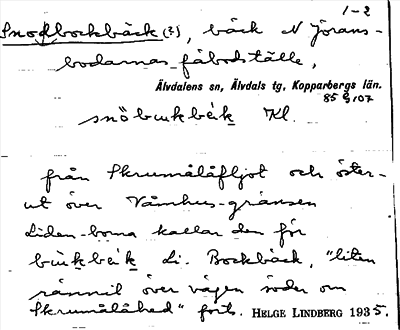 1-2
Snoslbockbäck (?), bäck N Jörans-
bodarnas fäbodställe,
Älvdalens sn, Älvdals tg, Kopparbergs län.
85 G 107
snöbukbék Kl.
från Skrumålåfljot och öster-
ut över Våmhus-gränsen
Liden-borna kallar den för
bukbék Li. Bockbäck, "liten
rännil över vägen söder om
Skrumålåhed" forts. HELGE LINDBERG 1935.